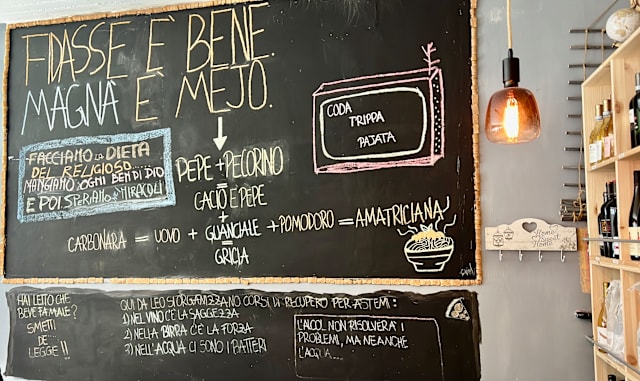 FIDASSE E' BENE.
MAGNÀ E' MEJO.
FACCIAMO LA DIETA
DEL RELIGIOSO...
MANGIAMO OGNI BEN DI DIO
E POI SPERIAMO NEI MIRACOLI
PEPE + PECORINO
=
CACIO E PEPE
+
CARBONARA = UOVO + GUANCIALE + POMODORO = AMATRICIANA
=
GRICIA
CODA
TRIPPA
PAJATA
Home
Sweet
Home
HAI LETTO CHE
BEVE FA MALE?
SMETTI
DE
LEGGE!!
QUI DA LEO SI ORGANIZZANO CORSI DI RECUPERO PER ASTEMI:
1) NEL VINO C'È LA SAGGEZZA
2) NELLA BIRRA C'È LA FORZA
3) NELL'ACQUA CI SONO I BATTERI
L'ALCOL NON RISOLVERÀ I
PROBLEMI, MA NEANCHE
L'ACQUA....